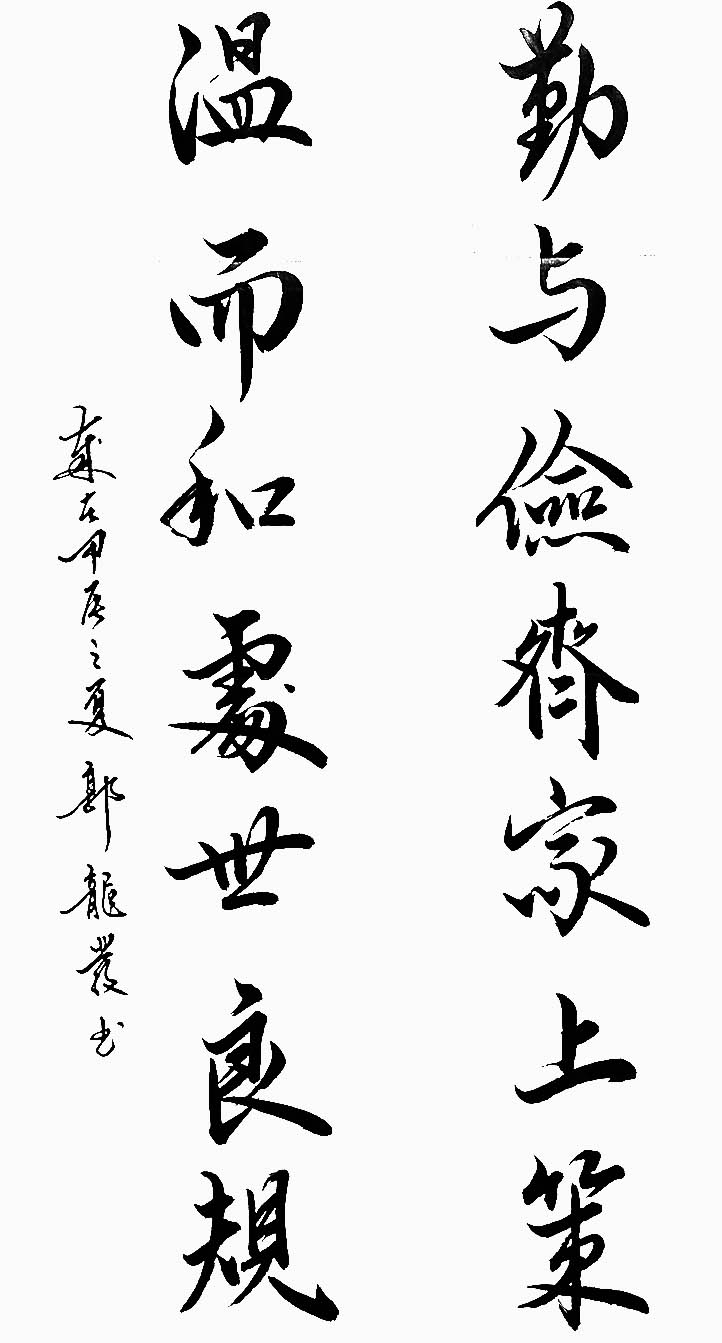 勤与儉齊家上策
溫而和處世良規
歲在甲辰之夏郭龍發书